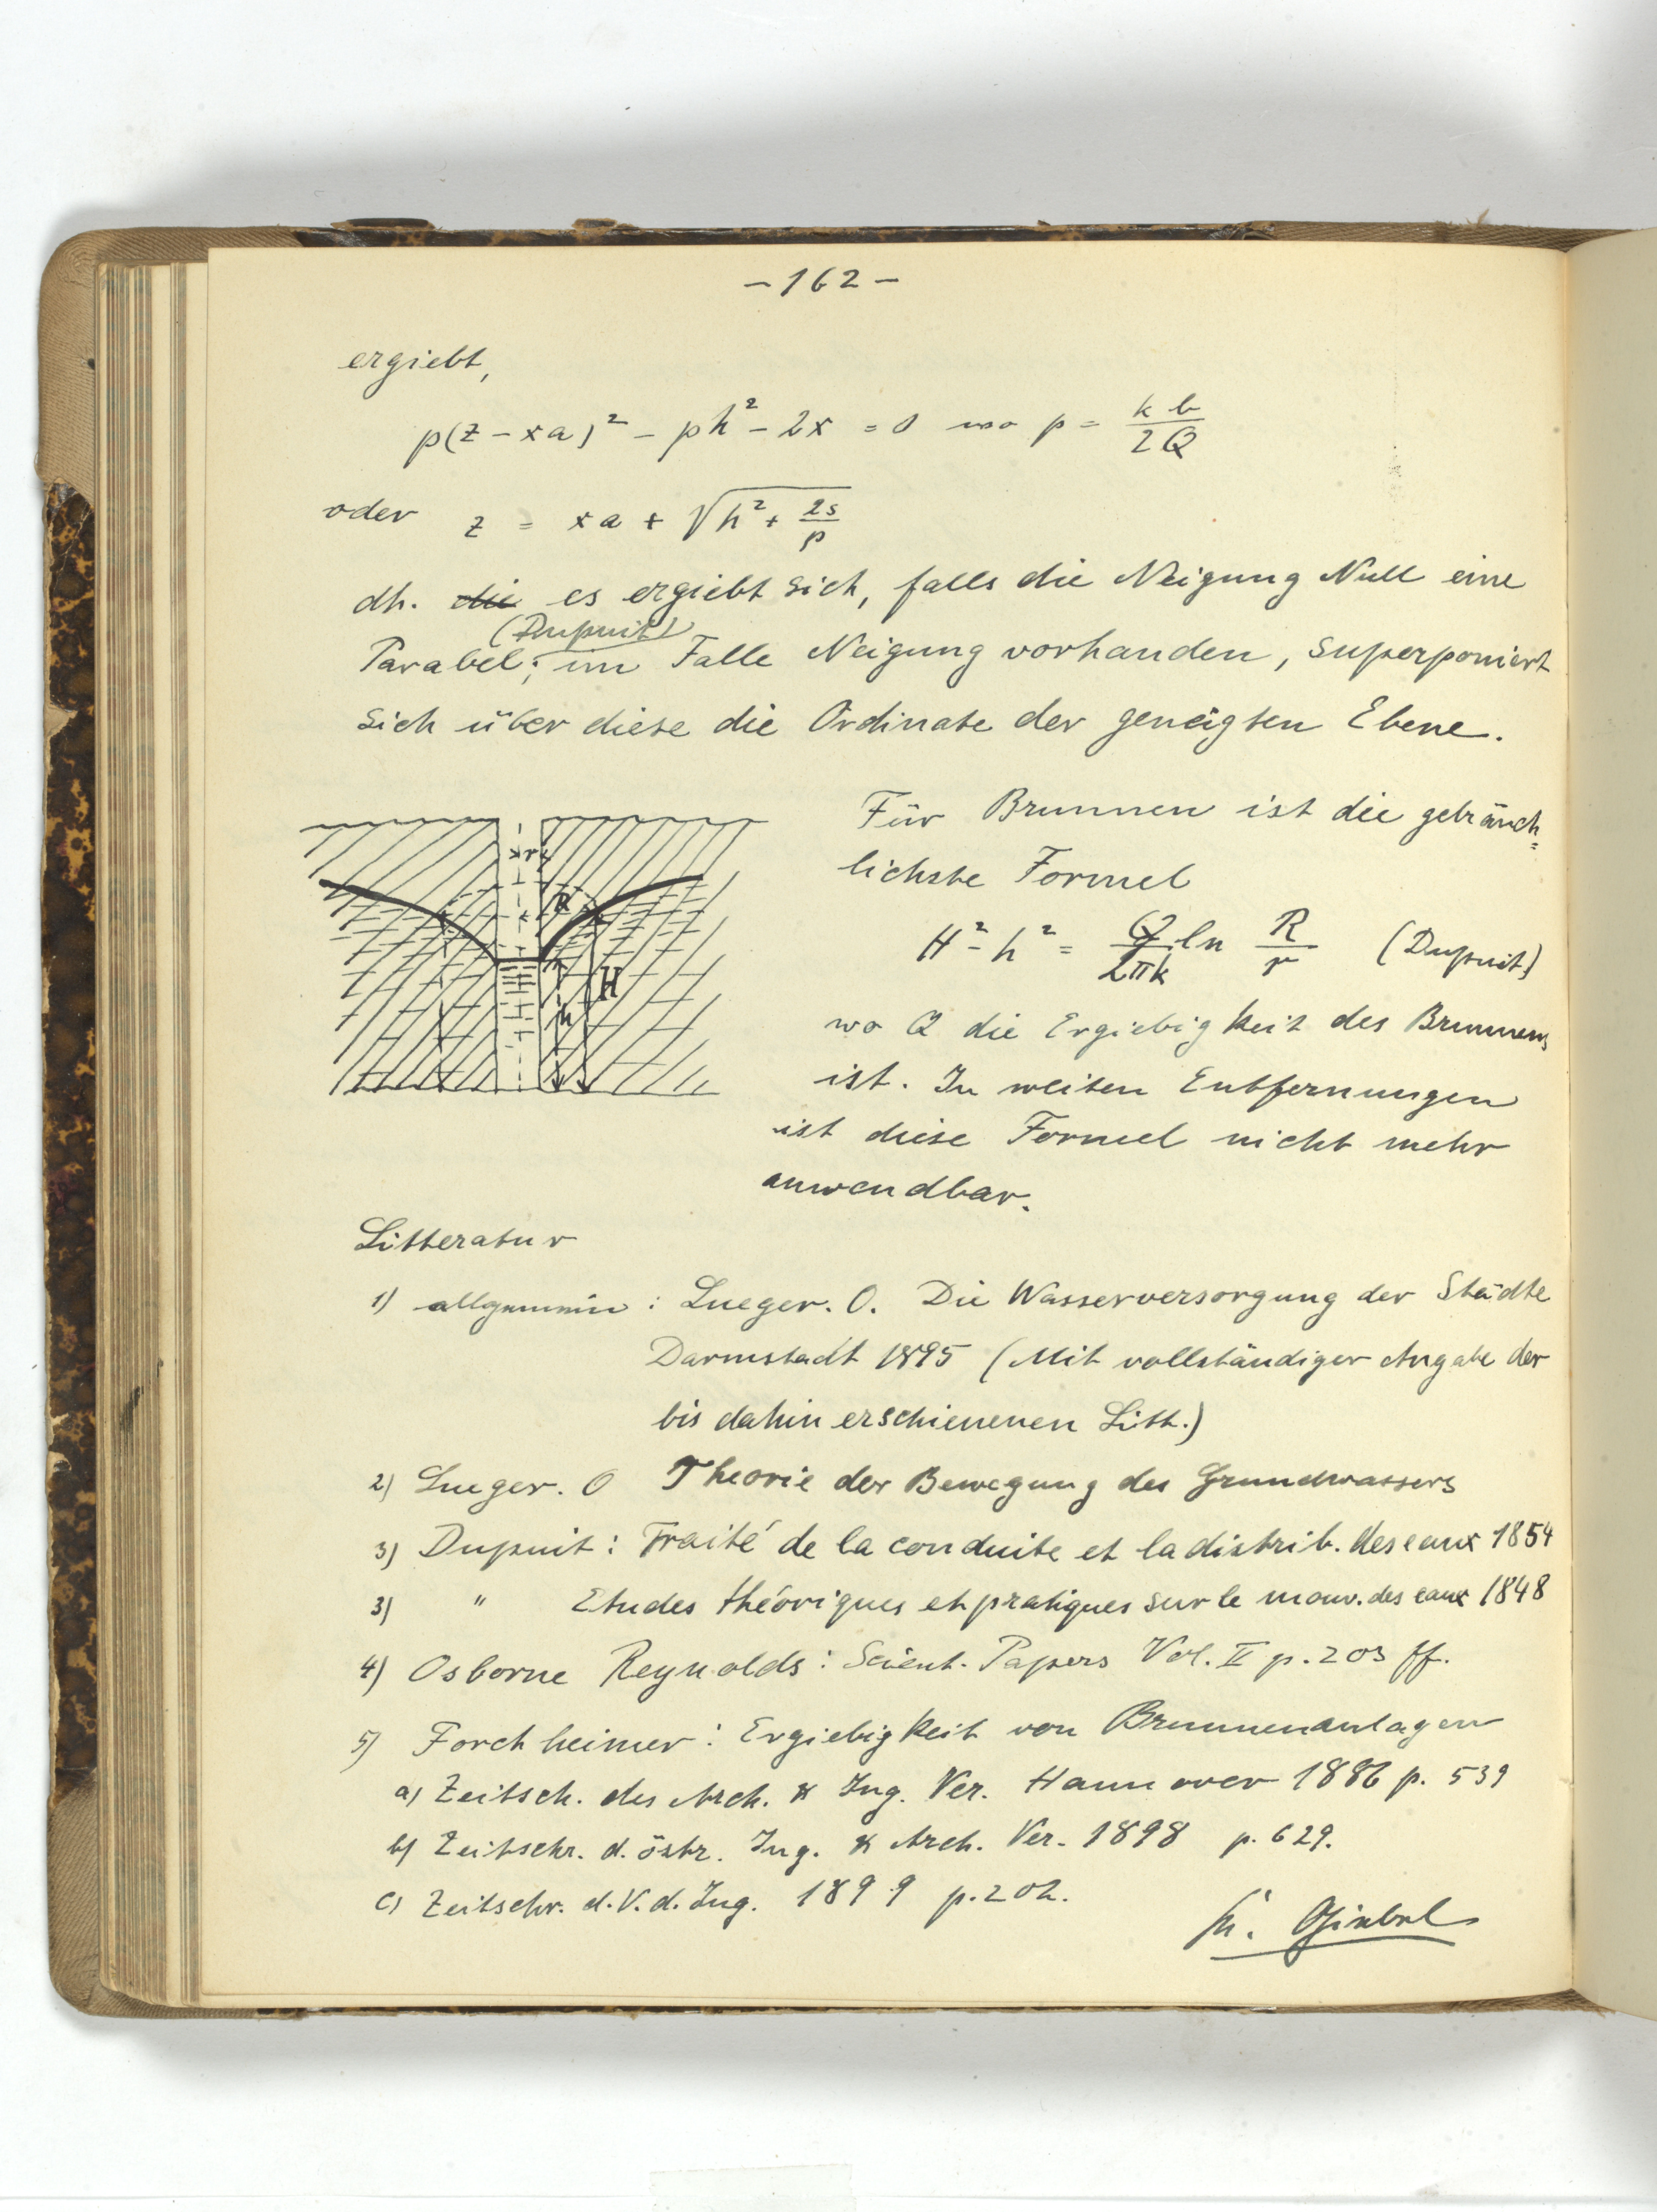 – 162 –
ergiebt,
p(z – xa)² – ph² – 2x = 0 wo p = kb/2Q
oder z = xa + √(h² + 2s/p)
dh. die es ergiebt sich, falls die Neigung Null eine
(Dupuit)
Parabel; im Falle Neigung vorhanden, superponiert
sich über diese die Ordinate der geneigten Ebene.
Für Brunnen ist die gebräuch=
lichste Formel
H² – h² = Q/2πk ln R/r (Dupuit)
r
R
H
h
wo Q die Ergiebigkeit des Brunnens
ist. In weiten Entfernungen
ist diese Formel nicht mehr
anwendbar.
Litteratur
1) allgemein : Lueger. O. Die Wasserversorgung der Städte
Darmstadt 1895 (Mit vollständiger Angabe der
bis dahin erschienenen Litt.)
2) Lueger. O Theorie der Bewegung des Grundwassers
3) Dupuit : Traité de la conduite et la distrib. des eaux 1854
3) " Etudes théoriques et pratiques sur le mouv. des eaux 1848
4) Osborne Reynolds : Scient. Papers Vol. II p. 203 ff.
5) Forchheimer : Ergiebigkeit von Brunnenanlagen
a) Zeitsch. des Arch. & Ing. Ver. Hannover 1886 p. 539
b) Zeitschr. d. östr. Ing. & Arch. Ver. 1898 p. 629.
c) Zeitschr. d. V. d. Ing. 1899 p. 202.